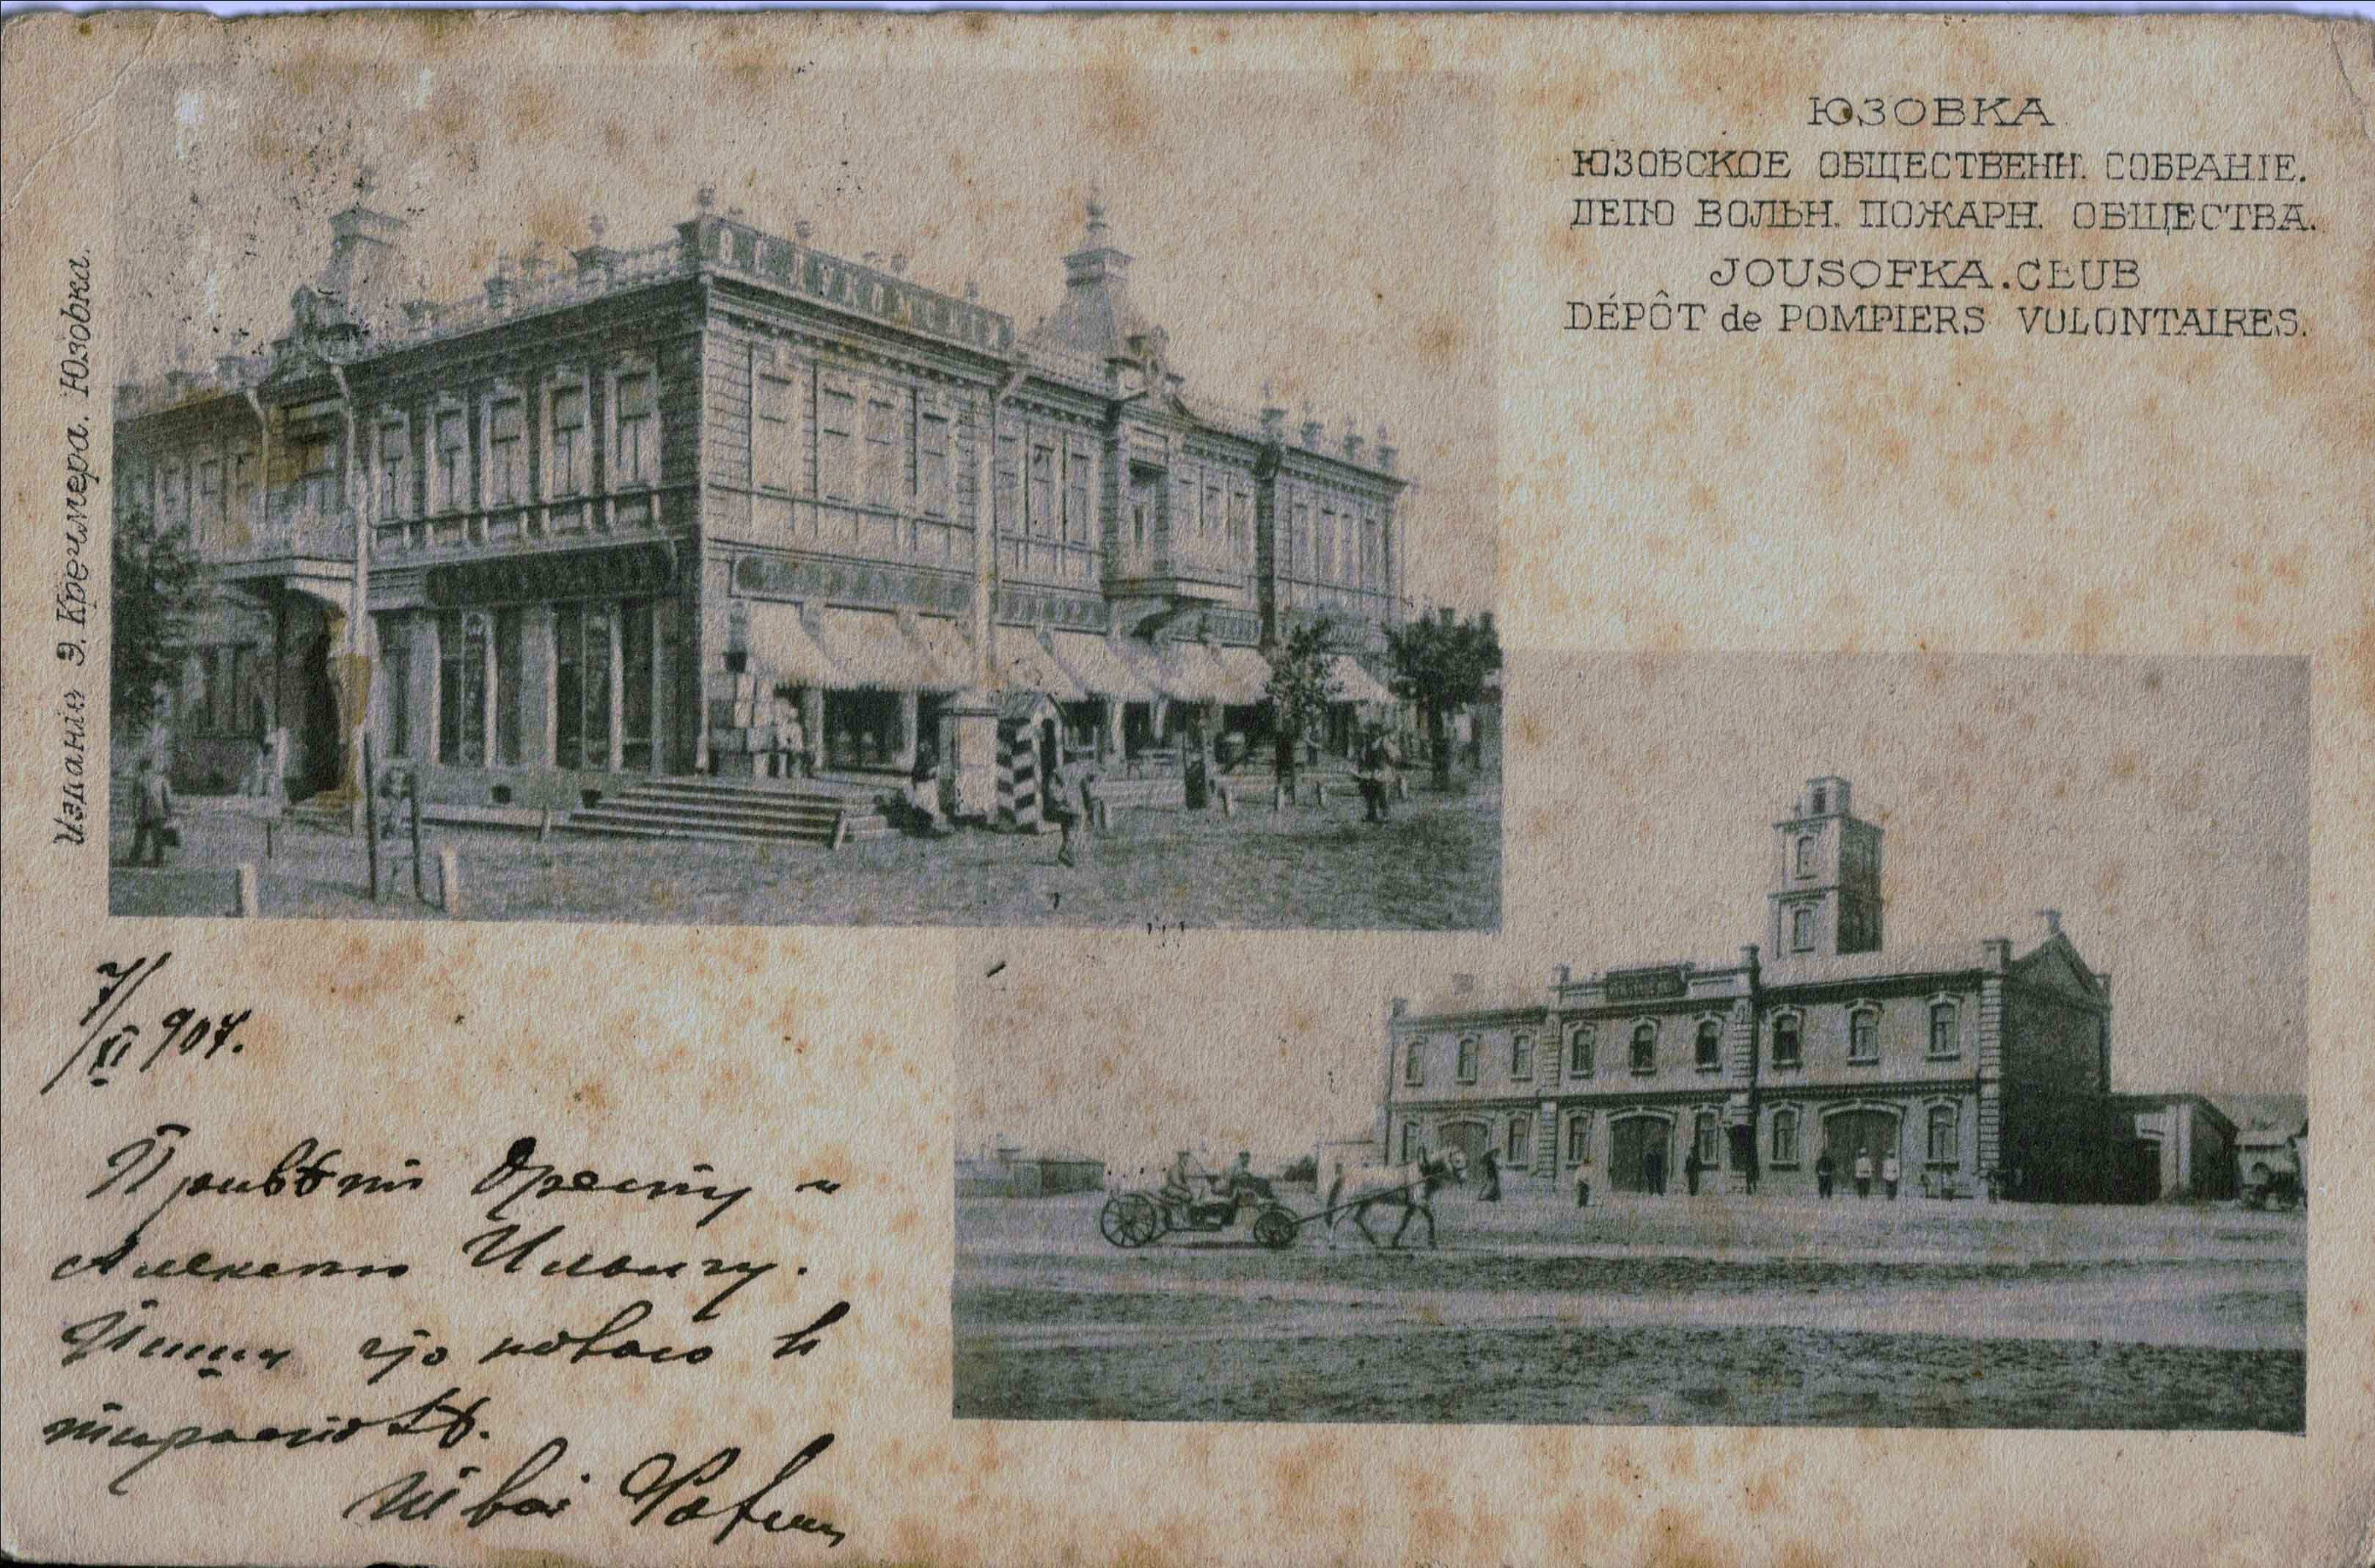 ЮЗОВКА
ЮЗОВСКОЕ ОБЩЕСТВЕНН. СОБРАНІЕ.
ДЕПО ВОЛЬН. ПОЖАРН. ОБЩЕСТВА.
JOUSOFKA.CLUB
DÉPÔT de POMPIERS VOLONTAIRES.
Изданія Э. Кречмера. Юзовка.
7/XI 907.
Привѣт Оресту и
Алексею Ильичу.
Пиши что новаго в
тирасполѣ.
Твой